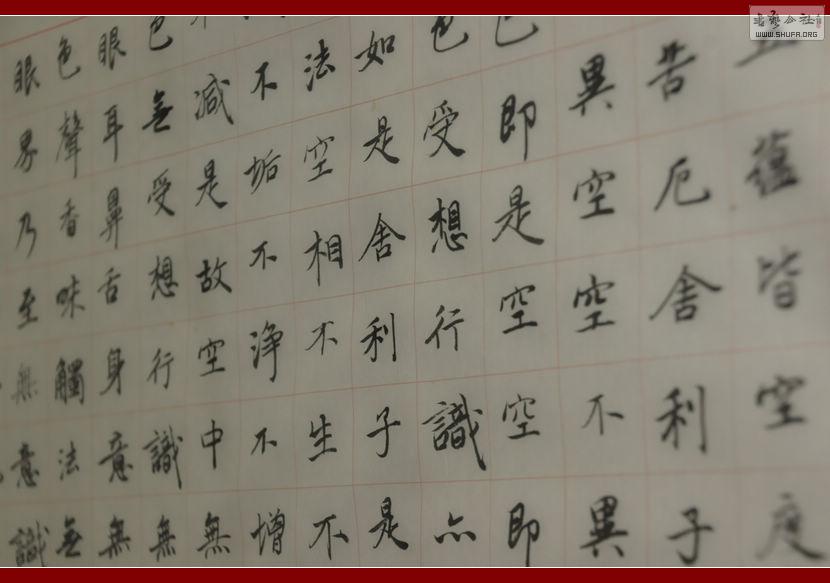 蘊皆空度
苦厄舍利子
異空空不異
色即是空空即
色受想行識亦
如是舍利子是
法空相不生不
不垢不淨不增
減是故空中無
色無受想行識無
眼耳鼻舌身意無
色聲香味觸法無
眼界乃至無意識
WWW.SHUFA.ORG